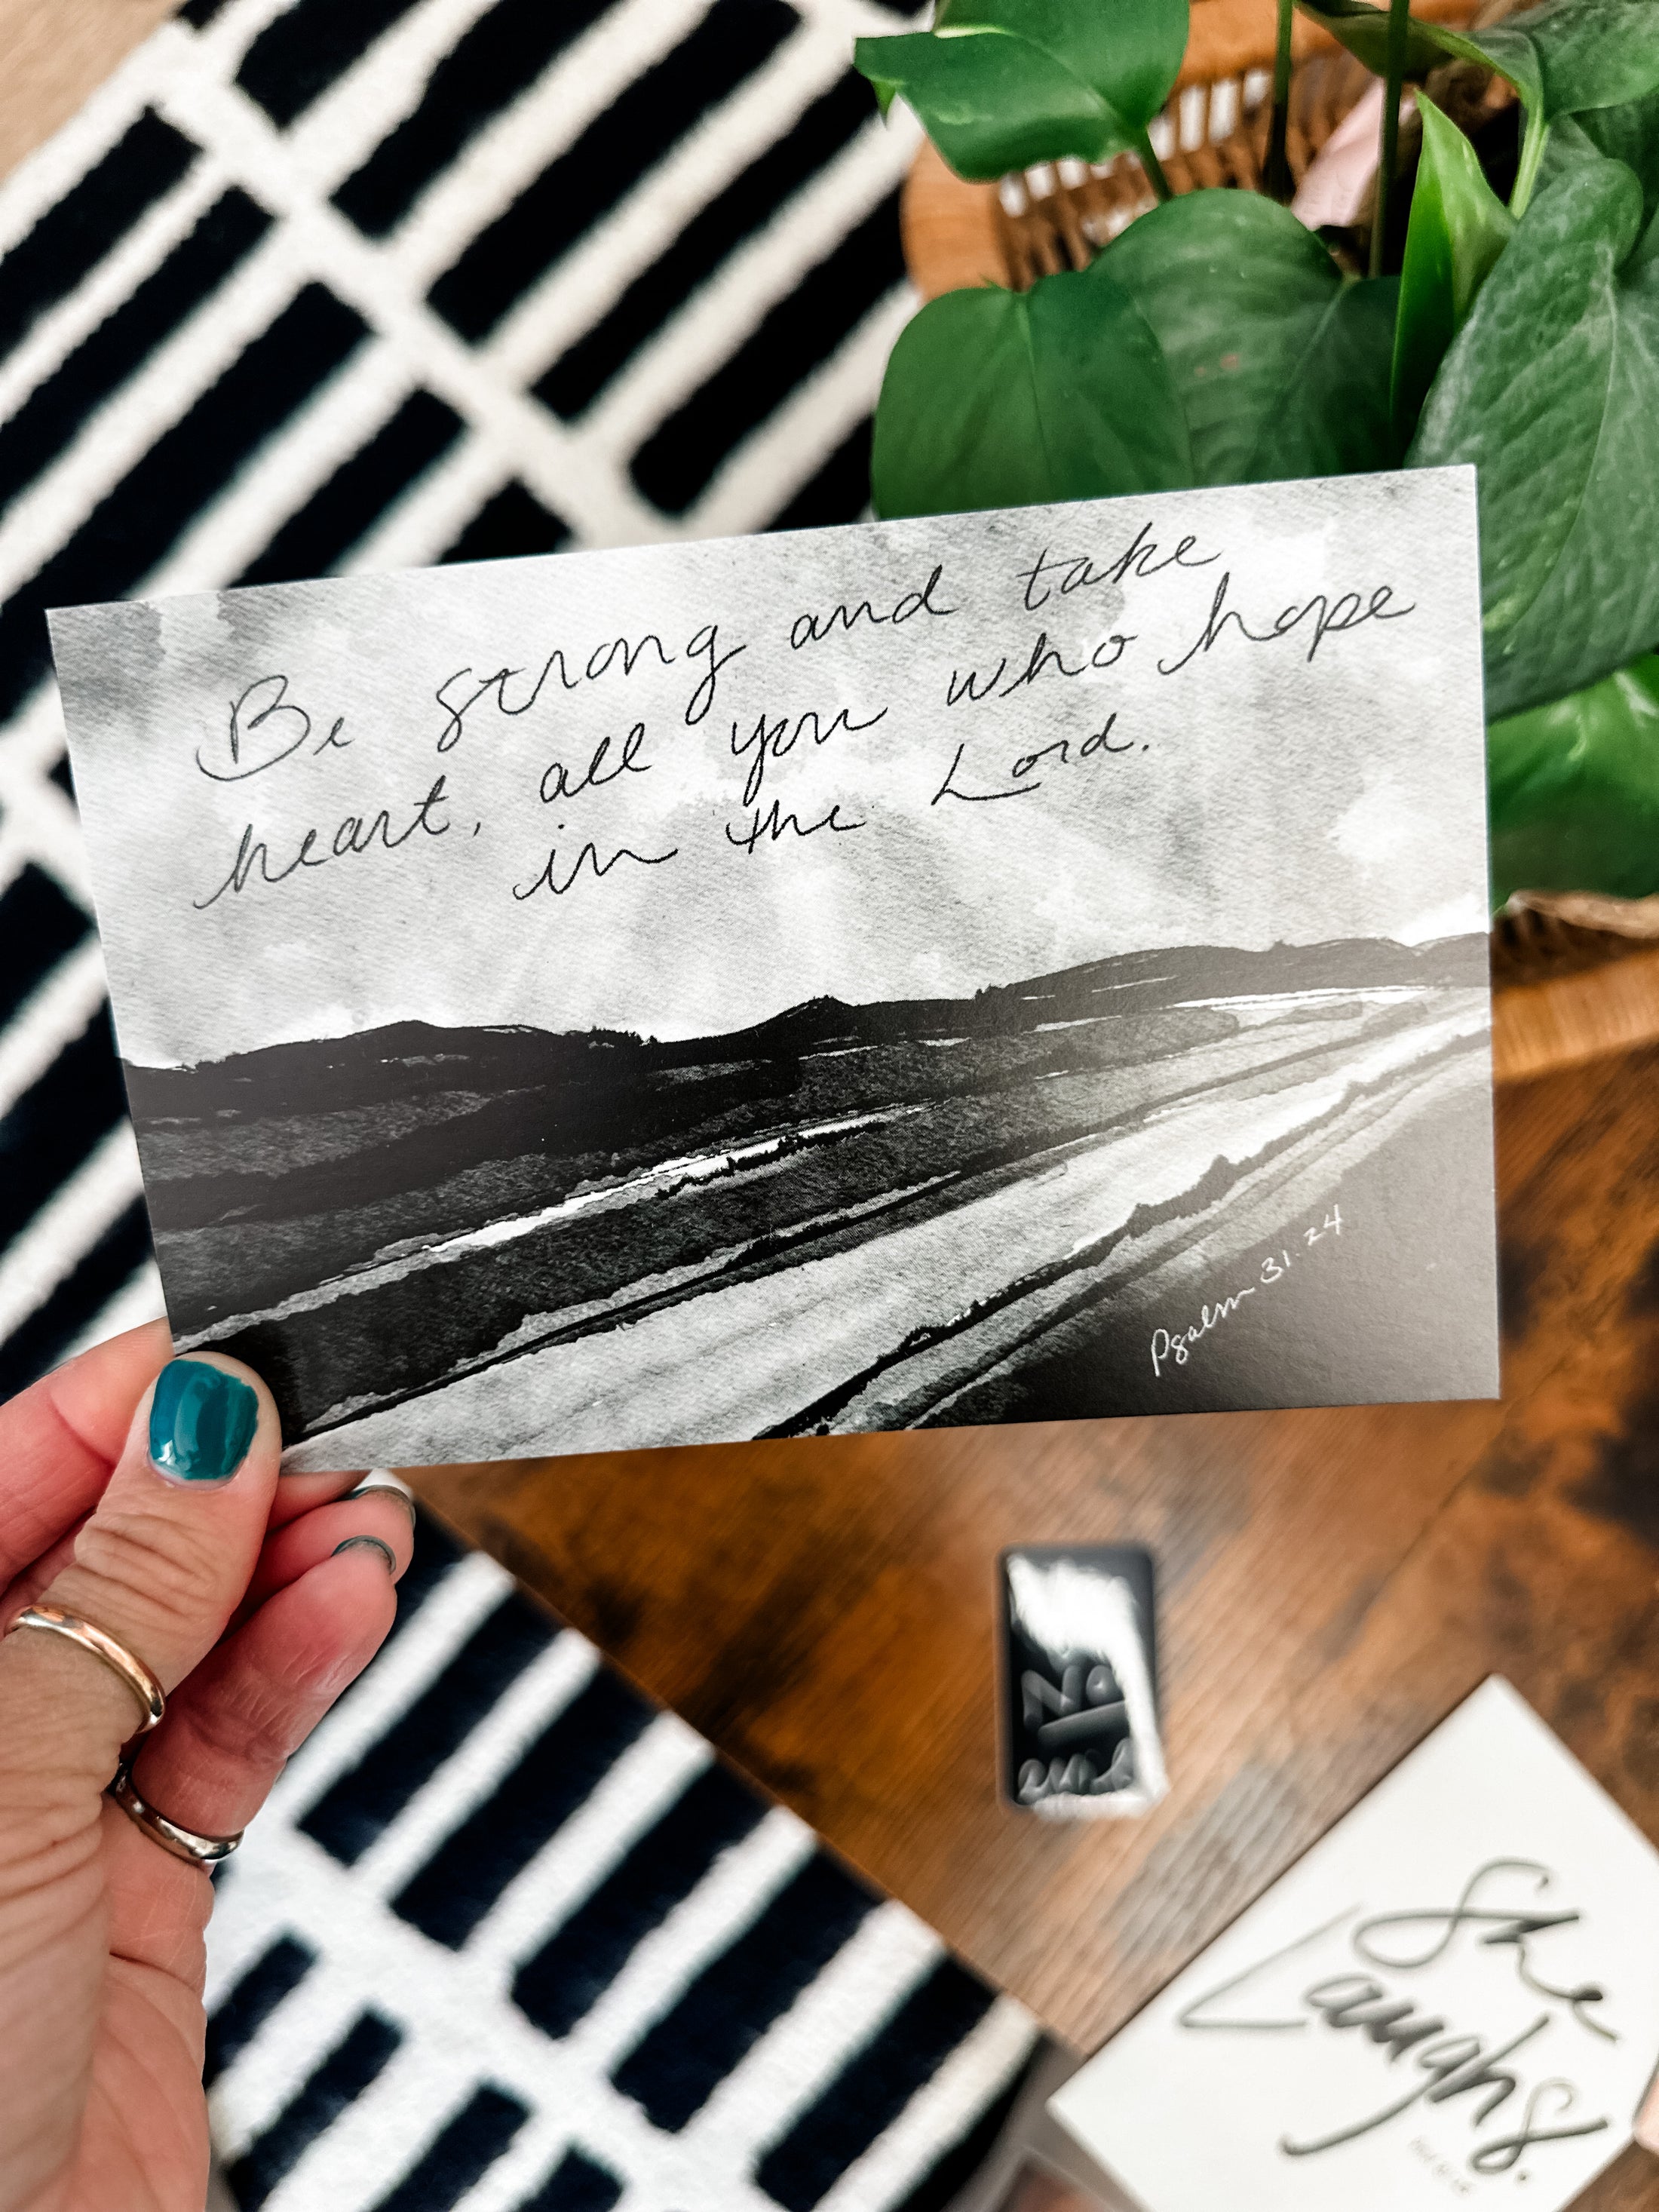 Be strong and take
heart, all you who hope
in the Lord.
Psalm 31:24
She
Laughs.